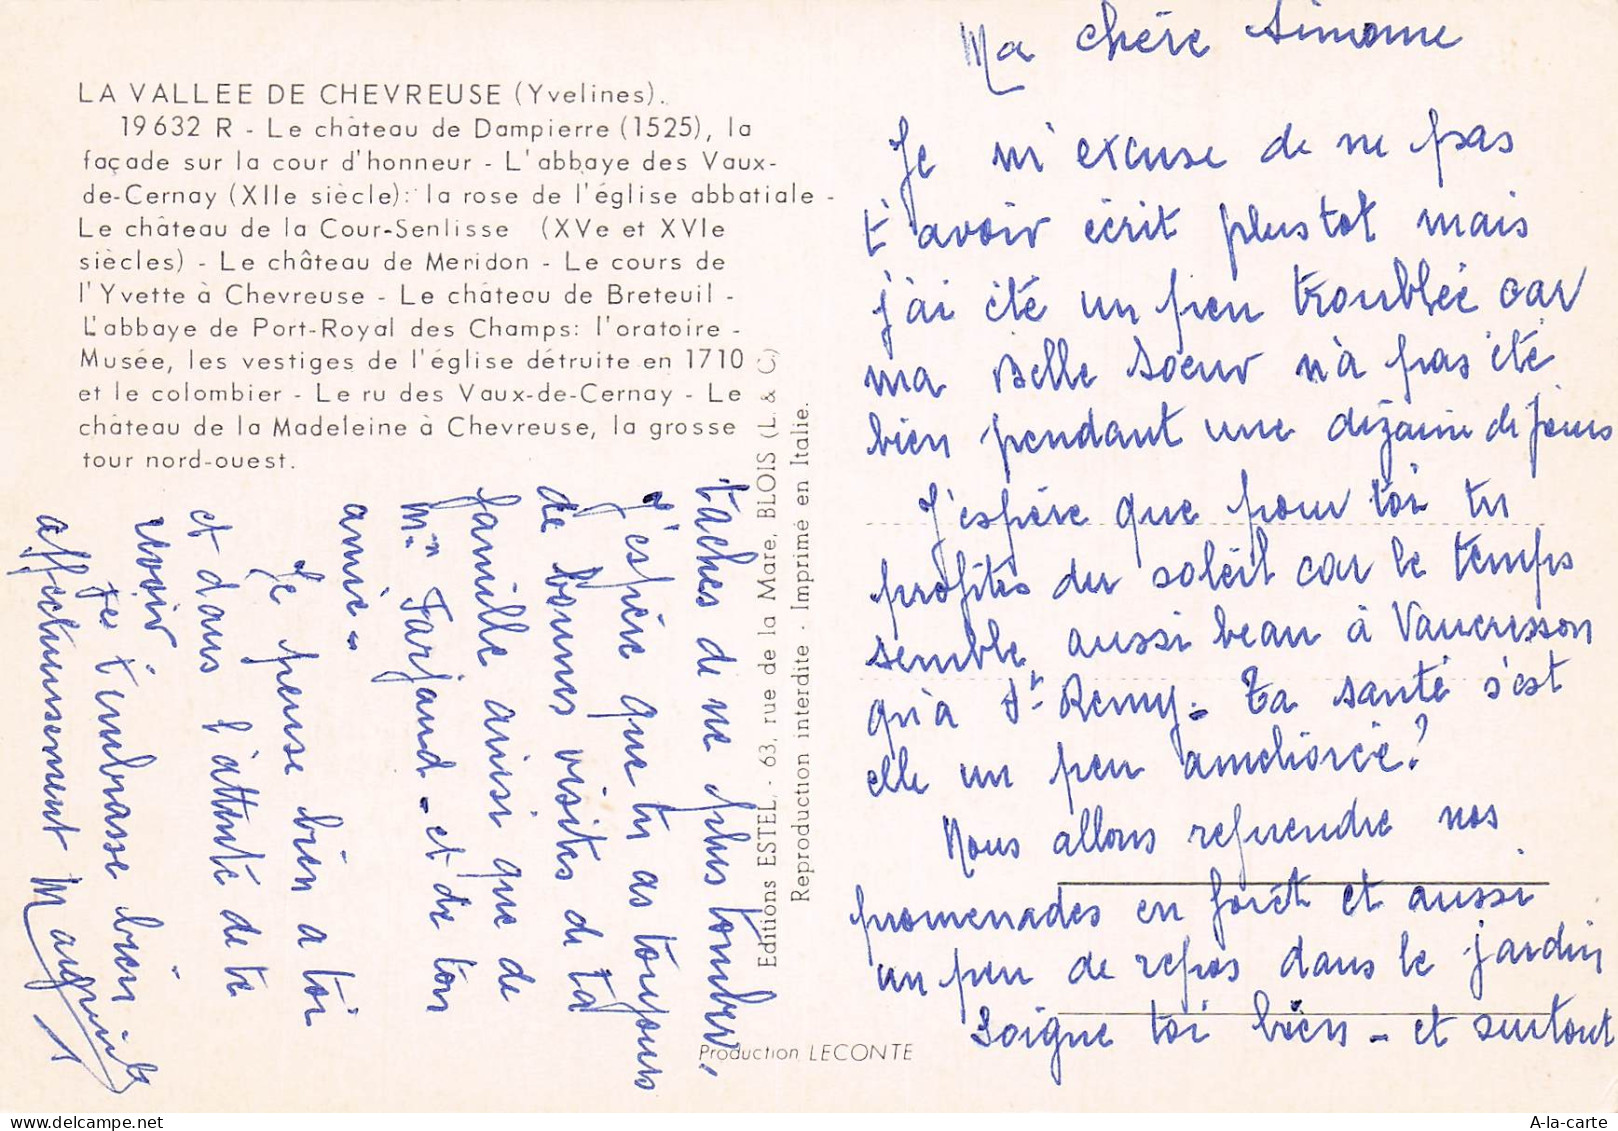 LA VALLEE DE CHEVREUSE (Yvelines).
19632 R - Le château de Dampierre (1525), la
façade sur la cour d'honneur - L'abbaye des Vaux-
de-Cernay (XIIe siècle): la rose de l'église abbatiale -
Le château de la Cour-Senlisse (XVe et XVIe
siècles) - Le château de Meridon - Le cours de
l'Yvette à Chevreuse - Le château de Breteuil -
L'abbaye de Port-Royal des Champs: l'oratoire -
Musée, les vestiges de l'église détruite en 1710
et le colombier - Le ru des Vaux-de-Cernay - Le
château de la Madeleine à Chevreuse, la grosse
tour nord-ouest.
Editions ESTEL, - 63, rue de la Mare, BLOIS (L. & C.)
Reproduction interdite - Imprimé en Italie.
Production LECONTE
Ma chère Simone
Je m'excuse de ne pas
t'avoir écrit plus tot mais
j'ai été un peu troublée car
ma Belle Soeur n'a pas été
bien pendant une dizaine de jours
J'espère que pour toi tu
profites du soleil car le temps
semble aussi beau à Vaucresson
qu'à St Remy - Ta santé s'est
elle un peu améliorée?
Nous allons reprendre nos
promenades en forêt et aussi
un peu de repos dans le jardin
Soigne toi bien - et surtout
taches de ne plus tomber.
J'espère que tu as toujours
de bonnes visites de ta
famille ainsi que de
Mme Farjaud - et de ton
amie -
Je pense bien a toi
et dans l'attente de te
revoir
je t'embrasse bien
affectueusement Marguerite
A-la-carte